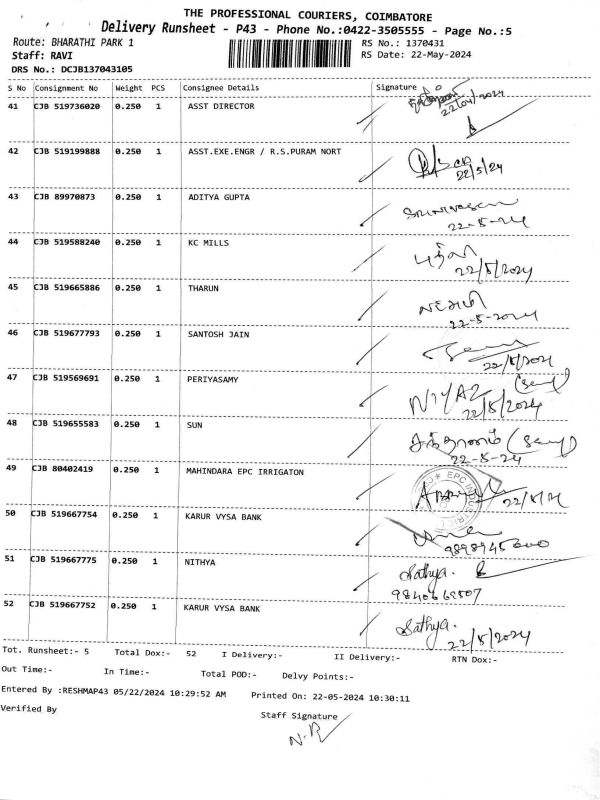 THE PROFESSIONAL COURIERS, COIMBATORE
Delivery Runsheet - P43 - Phone No.:0422-3505555 - Page No.:5
Route: BHARATHI PARK 1 RS No.: 1370431
Staff: RAVI RS Date: 22-May-2024
DRS No.: DCJB137043105
S No Consignment No Weight PCS Consignee Details Signature
41 CJB 519736020 0.250 1 ASST DIRECTOR
22/04/2024
42 CJB 519199888 0.250 1 ASST.EXE.ENGR / R.S.PURAM NORT
22/5/24
43 CJB 89970873 0.250 1 ADITYA GUPTA Srinivasan
22-5-24
44 CJB 519588240 0.250 1 KC MILLS
22/5/2024
45 CJB 519665886 0.250 1 THARUN
22-5-2024
46 CJB 519677793 0.250 1 SANTOSH JAIN
22/5/2024
47 CJB 519569691 0.250 1 PERIYASAMY NIYAZ
22/5/2024
48 CJB 519655583 0.250 1 SUN
22-5-24
49 CJB 80402419 0.250 1 MAHINDARA EPC IRRIGATON
50 CJB 519667754 0.250 1 KARUR VYSA BANK
51 CJB 519667775 0.250 1 NITHYA Sathya.
52 CJB 519667752 0.250 1 KARUR VYSA BANK Sathya.
22/5/2024
Tot. Runsheet:- 5 Total Dox:- 52 I Delivery:- II Delivery:- RTN Dox:-
Out Time:- In Time:- Total POD:- Delvy Points:-
Entered By :RESHMAP43 05/22/2024 10:29:52 AM Printed On: 22-05-2024 10:30:11
Verified By Staff Signature
N.R